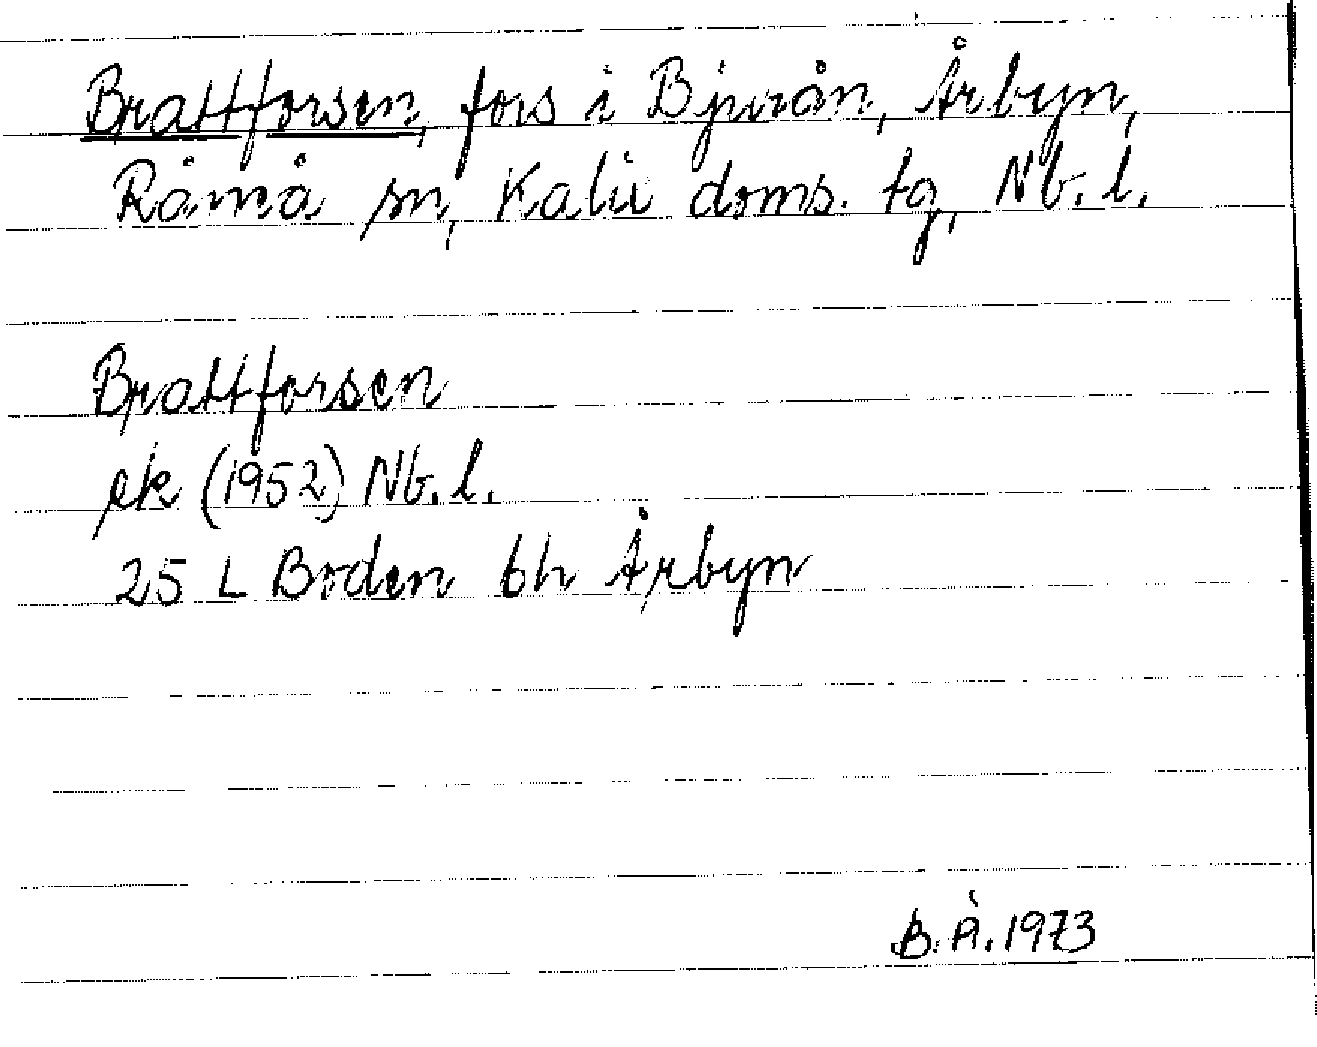 Brattforsen, fors i Bjurån, Årbyn,
Råneå sn, Kalix doms. tg, Nb. l.
Brattforsen
ek (1952) Nb. l.
25 L Boden 6h Årbyn
B. Å. 1973